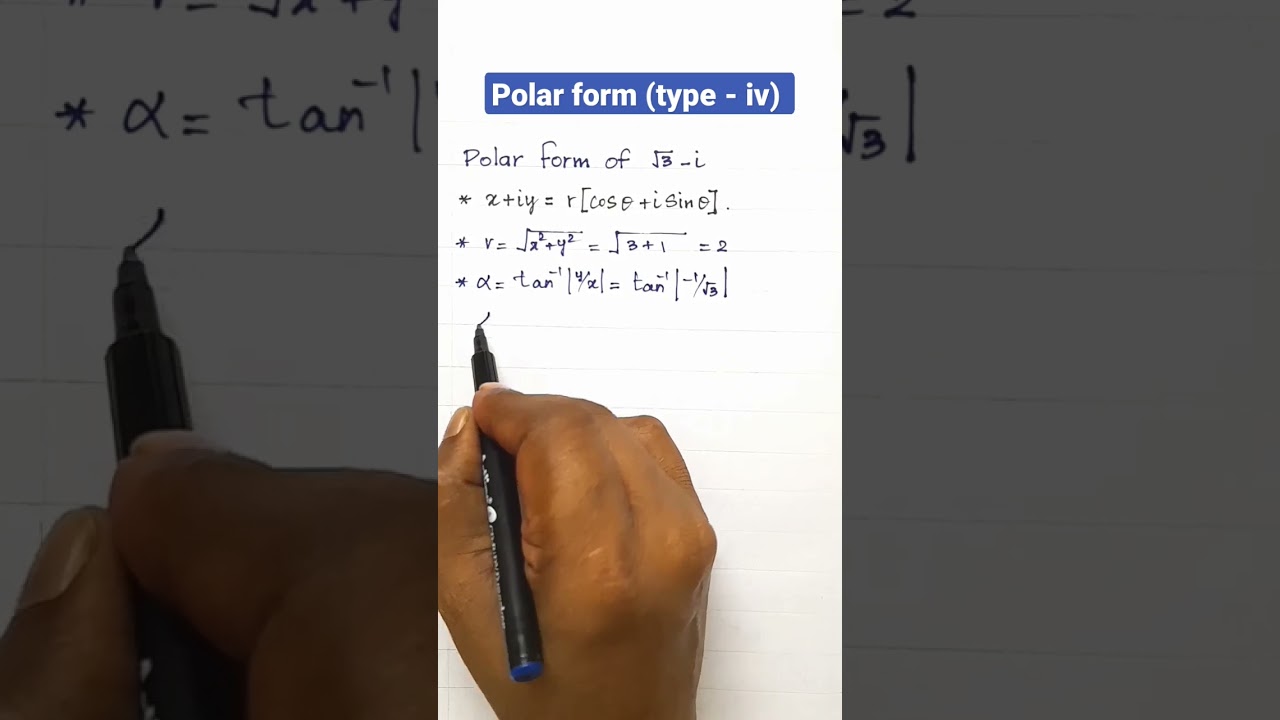 Polar form (type - iv)
Polar form of √3 - i
* x+iy = r[cosθ + i sinθ].
* r = √x²+y² = √3+1 = 2
* α = tan⁻¹|y/x| = tan⁻¹|-1/√3|